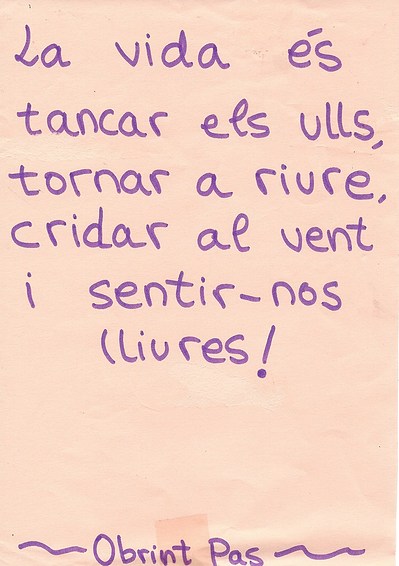 La vida és
tancar els ulls,
tornar a riure,
cridar al vent
i sentir-nos
lliures!
~ Obrint Pas ~